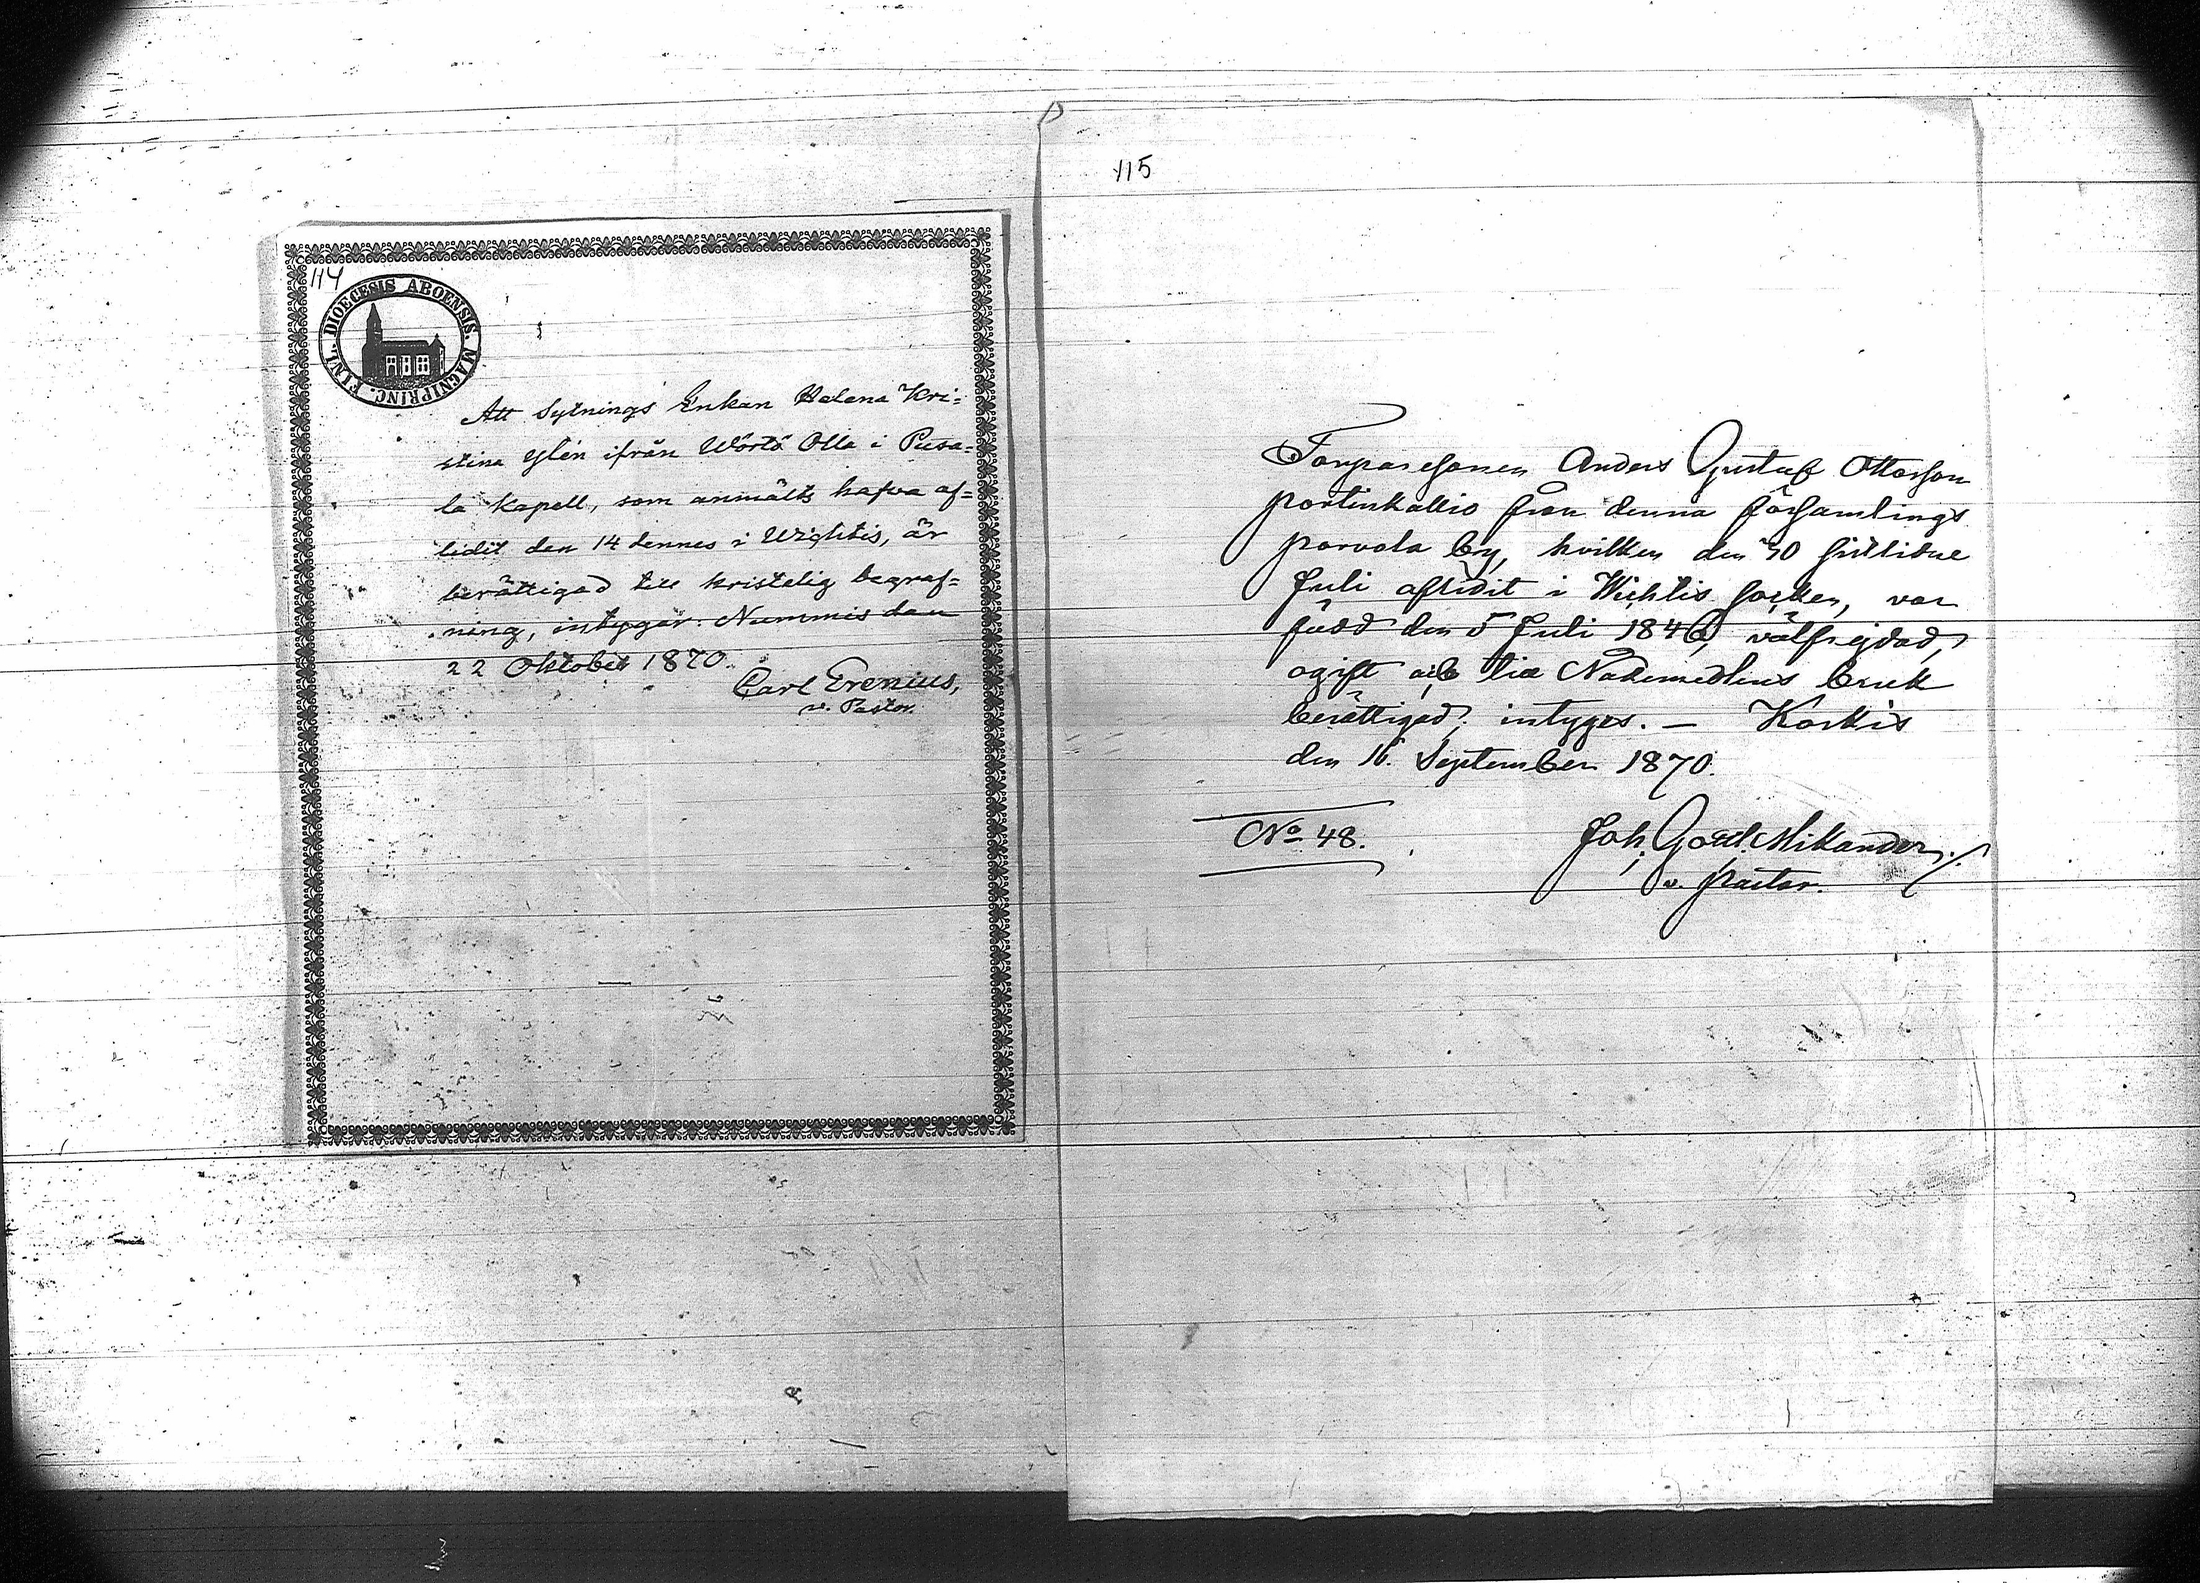 114
DIOECESIS ABOENSIS. MAGNIPRINC. FINL.
Att Sytnings Enkan Helena Kri=
stina Ylén ifrån Wörlö Olla i Pusa=
la kapell, som anmälts hafva af=
lidit den 14 dennes i Wichtis, är
berättigad till kristelig begraf=
ning, intygar. Nummis den
22 Oktober 1870.
Carl Grenius,
v. Pastor.
115
Torparesonen Anders Gustaf Ottosson
Portinkallio från denna församlings
Porvola by, hvilken den 30 sistlidne
Juli aflidit i Wichtis socken, var
född den 5 Juli 1846, välfrejdad,
ogift och till Nademedlens bruk
berättigad; intyges. — Korkis
den 16. September 1870.
No 48.
Joh. Gottl. Mikander
v. pastor.